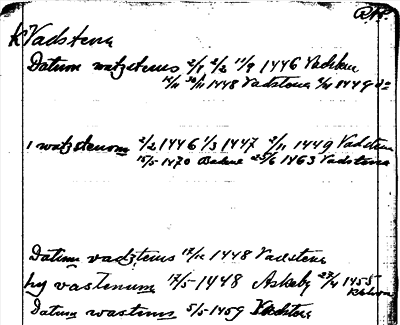 K Vadstena
Datum watzstenis 2/1 2/2 11/9 1446 Vadsten
12/11 30/11 1448 Vadstena 1449
i watzstenom 2/2 1446 1/3 1447 2/11 1449 Vadstena
15/5 1470 25/6 1463 Vadstena
Datum vadztenis 17/12 1448 Vadstena
hy vastenum 17/5 1448 Askeby 23/4 1455
Datum wastinis 5/5 1459